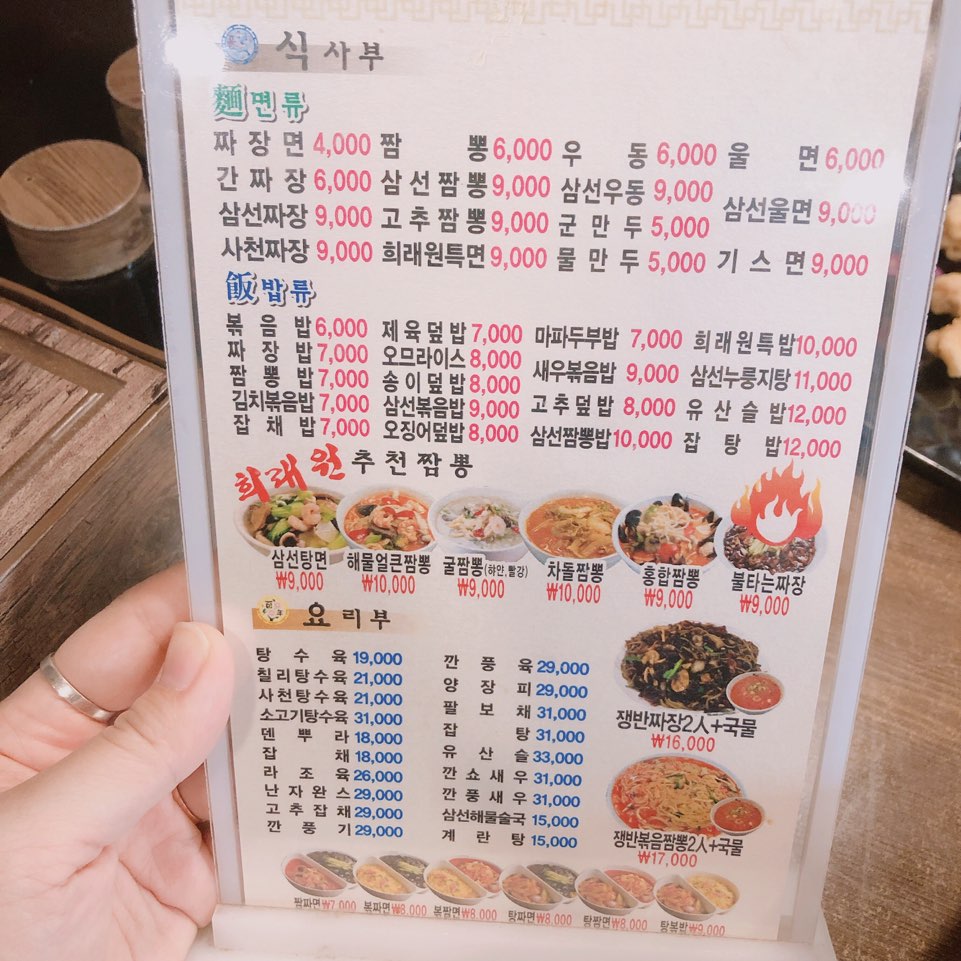 식사부
麵 면류
짜장면 4,000 짬뽕 6,000 우동 6,000 울면 6,000
간짜장 6,000 삼선짬뽕 9,000 삼선우동 9,000 삼선울면 9,000
삼선짜장 9,000 고추짬뽕 9,000 군만두 5,000
사천짜장 9,000 희래원특면 9,000 물만두 5,000 기스면 9,000
飯 밥류
볶음밥 6,000 제육덮밥 7,000 마파두부밥 7,000 희래원특밥 10,000
짜장밥 7,000 오므라이스 8,000 새우볶음밥 9,000 삼선누룽지탕 11,000
짬뽕밥 7,000 송이덮밥 8,000 고추덮밥 8,000 유산슬밥 12,000
김치볶음밥 7,000 삼선볶음밥 9,000 삼선짬뽕밥 10,000 잡탕밥 12,000
잡채밥 7,000 오징어덮밥 8,000
희래원 추천짬뽕
삼선탕면 해물얼큰짬뽕 굴짬뽕(하얀,빨강) 차돌짬뽕 홍합짬뽕 불타는짜장
₩9,000 ₩10,000 ₩9,000 ₩10,000 ₩9,000 ₩9,000
요리부
탕수육 19,000
칠리탕수육 21,000
사천탕수육 21,000
소고기탕수육 31,000
덴뿌라 18,000
잡채 18,000
라조육 26,000
난자완스 29,000
고추잡채 29,000
깐풍기 29,000
깐풍육 29,000
양장피 29,000
팔보채 31,000
잡탕 31,000
유산슬 33,000
깐쇼새우 31,000
깐풍새우 31,000
삼선해물술국 15,000
계란탕 15,000
쟁반짜장2人+국물
₩16,000
쟁반볶음짬뽕2人+국물
₩17,000
짬짜면 ₩7,000 볶짜면 ₩8,000 볶짬면 ₩8,000 탕짜면 ₩8,000 탕짬면 ₩8,000 탕볶밥 ₩9,000